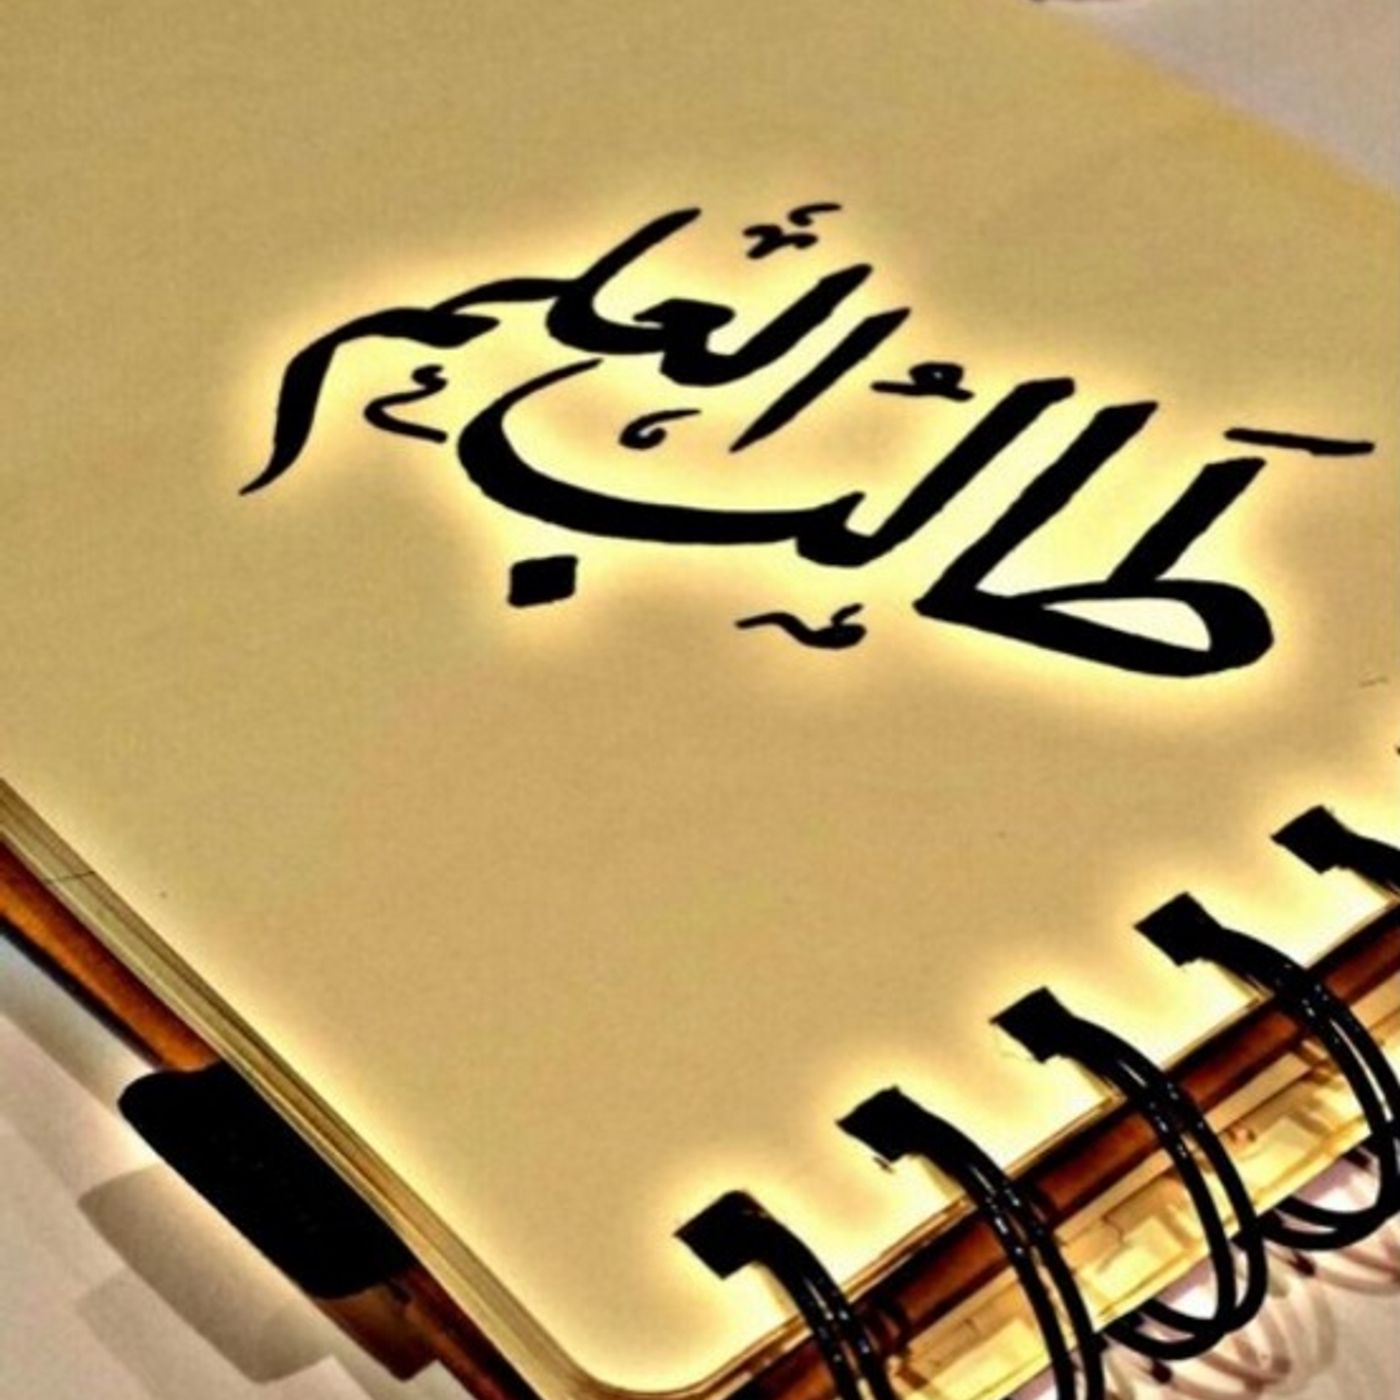 طَالبُ العلم